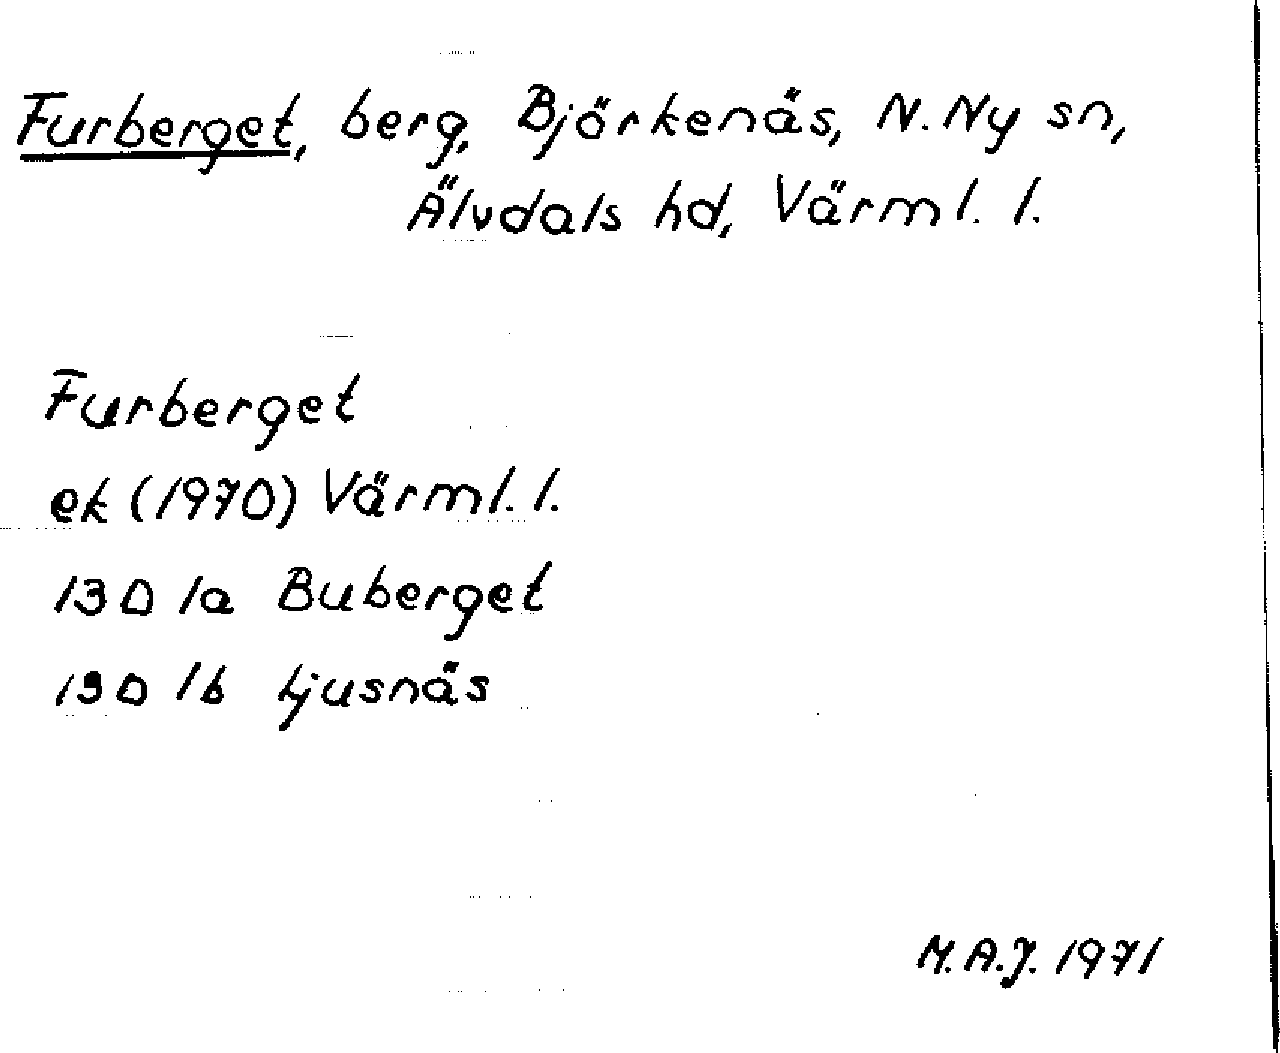 Furberget, berg, Björkenäs, N. Ny sn,
Älvdals hd, Värml. l.
Furberget
ek (1970) Värml. l.
13D 1a Buberget
13D 1b Ljusnäs
M.A.J. 1971